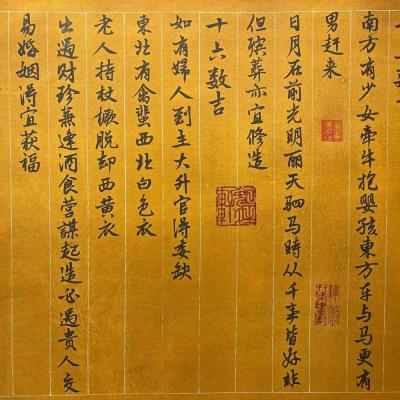 南方有少女牵牛抱婴孩東方车与马更有
男赶来
日月在前光明丽天驷马時从千事皆好非
但殡葬亦宜修造
十六数吉
如有婦人到主大升官得委缺
東北有禽蜚西北白色衣
老人持杖撅脱却西黄衣
出遇财珍兼逢酒食营謀起造必遇贵人交
易婚姻得宜获福